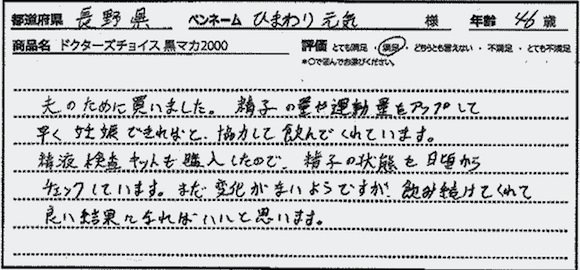 都道府県 長野県 ペンネーム ひまわり元気 様 年齢 46 歳
商品名 ドクターズチョイス 黒マカ2000 評価 とても満足 ・ 満足 ・ どちらとも言えない ・ 不満足 ・ とても不満足
*○で囲んでお選びください。
夫のために買いました。 精子の量や運動量をアップして
早く妊娠できればと、協力して飲んでくれています。
精液検査キットも購入したので、精子の状態を日頃から
チェックしています。まだ変化がないようですが、飲み続けてくれて
良い結果になればいいと思います。